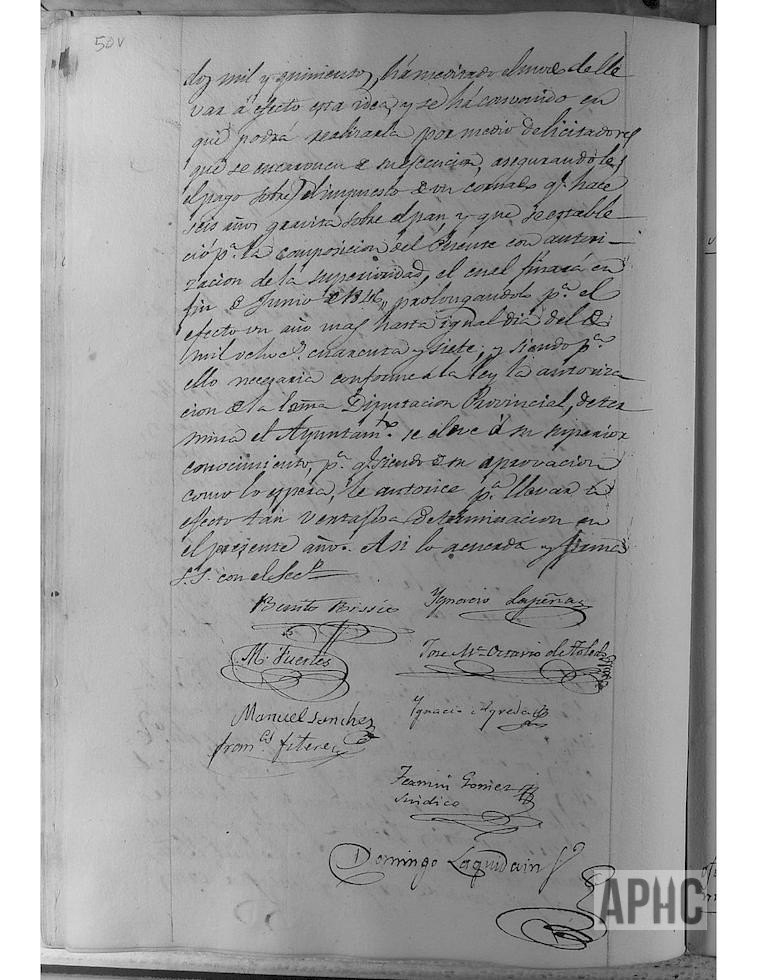 50v
dos mil y quinientos, há meditado el modo de lle
var á efecto esta idea, y se há convenido en
que podrá realizarla por medio de licitadores
que se encarguen de su ejecucion, asegurandoles
el pago sobre el impuesto de un cornado q.e hace
seis años gravita sobre el pan y que se estable-
ció p.a la composicion del Puente con autori-
zacion de la superioridad, el cual finará en
fin de Junio de 1846,, prolongandolo p.a el
efecto un año mas hasta igual dia del de
mil ochoc.s cuarenta y siete; y siendo p.a
ello necesaria conforme á la ley la autoriza
cion de la Diputacion Provincial, deter
mina el Ayuntam.to se eleve á su superior
conocimiento, p.a q.e siendo de su aprovacion
como lo espera, le autorice p.a llevar á
efecto tan ventajosa determinacion en
el presente año. Asi lo acuerda y firma
S.S. con el Sec.o
Benito Ignacio Lapeña
M. Fuertes Jose M.a Octavio de Toledo
Manuel Sanchez Ignacio Agreda
Fran.co Fitero
Fermin Gomez
Sindico
Domingo Laquidain S.o
APHC